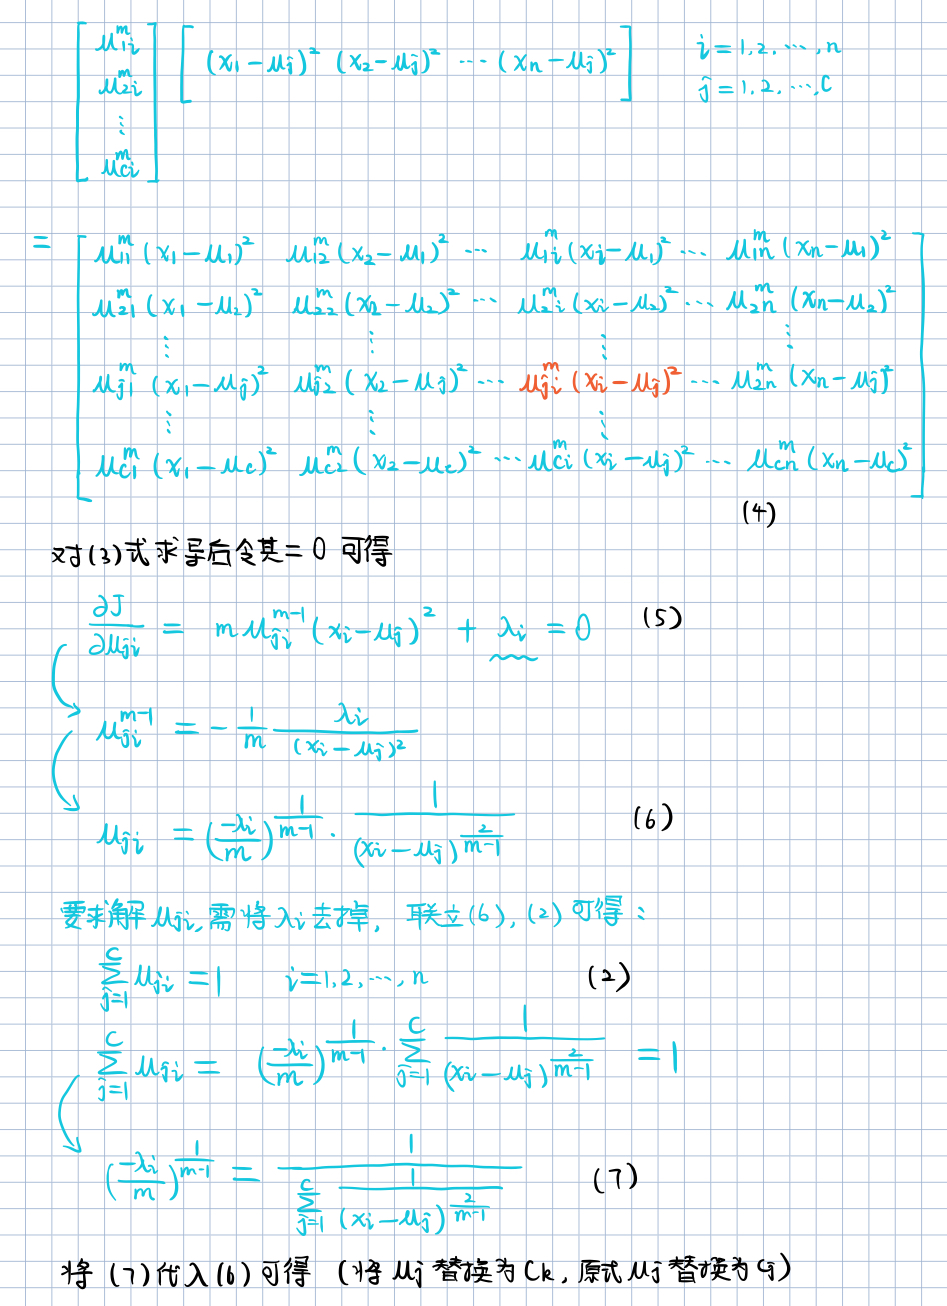 [μ₁ᵢᵐ μ₂ᵢᵐ ⋮ μcᵢᵐ] [(x₁-μⱼ)² (x₂-μⱼ)² ⋯ (xₙ-μⱼ)²] i=1,2,⋯,n
j=1,2,⋯,c
= [ μ₁₁ᵐ(x₁-μ₁)² μ₁₂ᵐ(x₂-μ₁)² ⋯ μ₁ᵢᵐ(xᵢ-μ₁)² ⋯ μ₁ₙᵐ(xₙ-μ₁)²
μ₂₁ᵐ(x₁-μ₂)² μ₂₂ᵐ(x₂-μ₂)² ⋯ μ₂ᵢᵐ(xᵢ-μ₂)² ⋯ μ₂ₙᵐ(xₙ-μ₂)²
⋮ ⋮ ⋮ ⋮
μⱼ₁ᵐ(x₁-μⱼ)² μⱼ₂ᵐ(x₂-μⱼ)² ⋯ μⱼᵢᵐ(xᵢ-μⱼ)² ⋯ μ₂ₙᵐ(xₙ-μⱼ)²
⋮ ⋮ ⋮
μc₁ᵐ(x₁-μc)² μc₂ᵐ(x₂-μc)² ⋯ μcᵢᵐ(xᵢ-μⱼ)² ⋯ μcₙᵐ(xₙ-μc)² ]
(4)
对(3)式求导后令其=0 可得
∂J/∂μⱼᵢ = m μⱼᵢ^(m-1) (xᵢ-μⱼ)² + λᵢ = 0 (5)
μⱼᵢ^(m-1) = - 1/m λᵢ/(xᵢ-μⱼ)²
μⱼᵢ = (-λᵢ/m)^(1/(m-1)) · 1/(xᵢ-μⱼ)^(2/(m-1)) (6)
要求解 μⱼᵢ, 需将 λᵢ 去掉, 联立(6), (2) 可得:
∑_{j=1}^{c} μⱼᵢ = 1 i=1,2,⋯,n (2)
∑_{j=1}^{c} μⱼᵢ = (-λᵢ/m)^(1/(m-1)) · ∑_{j=1}^{c} 1/(xᵢ-μⱼ)^(2/(m-1)) = 1
(-λᵢ/m)^(1/(m-1)) = 1/(∑_{j=1}^{c} 1/(xᵢ-μⱼ)^(2/(m-1))) (7)
将 (7)代入(6)可得 (将 μⱼ 替换为 Cₖ, 原式 μⱼ 替换为 cⱼ)